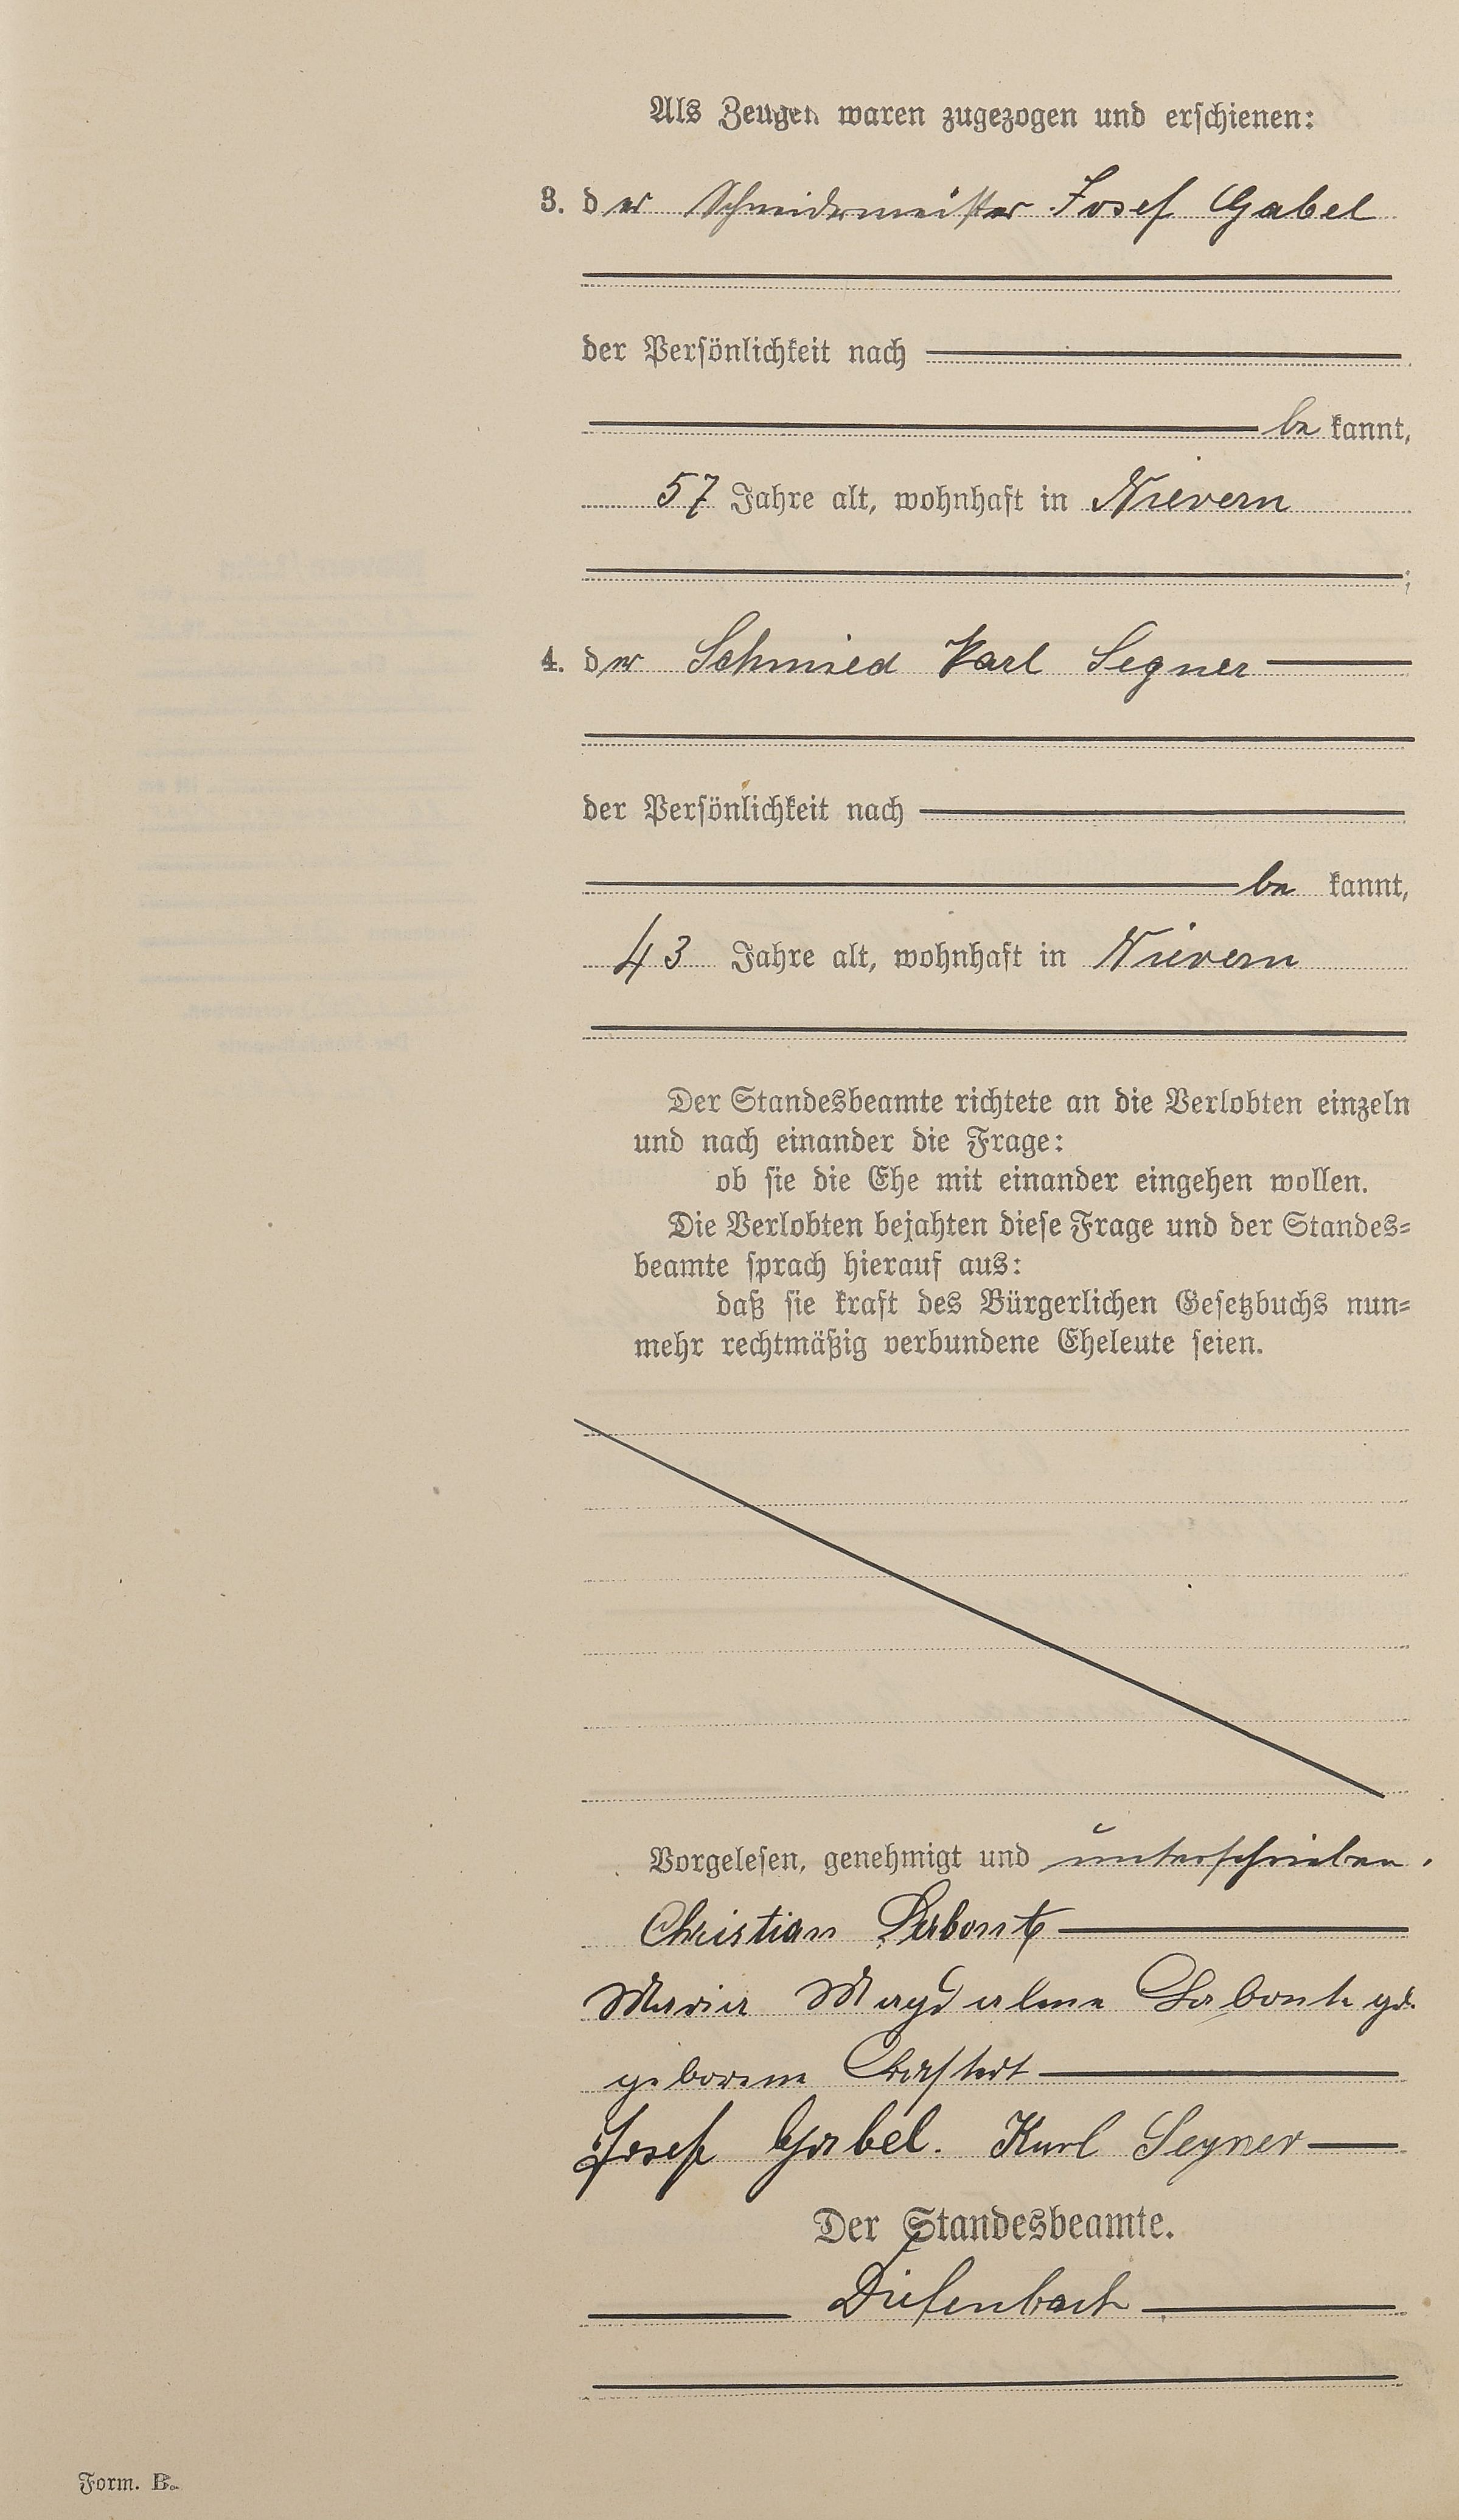 Als Zeugen waren zugezogen und erschienen:
3. der Schneidermeister Josef Gabel
der Persönlichkeit nach
be kannt,
57 Jahre alt, wohnhaft in Nievern
;
4. der Schmied Karl Segner
der Persönlichkeit nach
be kannt,
43 Jahre alt, wohnhaft in Nievern
Der Standesbeamte richtete an die Verlobten einzeln
und nach einander die Frage:
ob sie die Ehe mit einander eingehen wollen.
Die Verlobten bejahten diese Frage und der Standes-
beamte sprach hierauf aus:
daß sie kraft des Bürgerlichen Gesetzbuchs nun-
mehr rechtmäßig verbundene Eheleute seien.
Vorgelesen, genehmigt und unterschrieben.
Christian Labonte
Maria Magdalena Labonte
geborene
Josef Gabel. Karl Segner
Der Standesbeamte.
Diefenbach
Form. B.